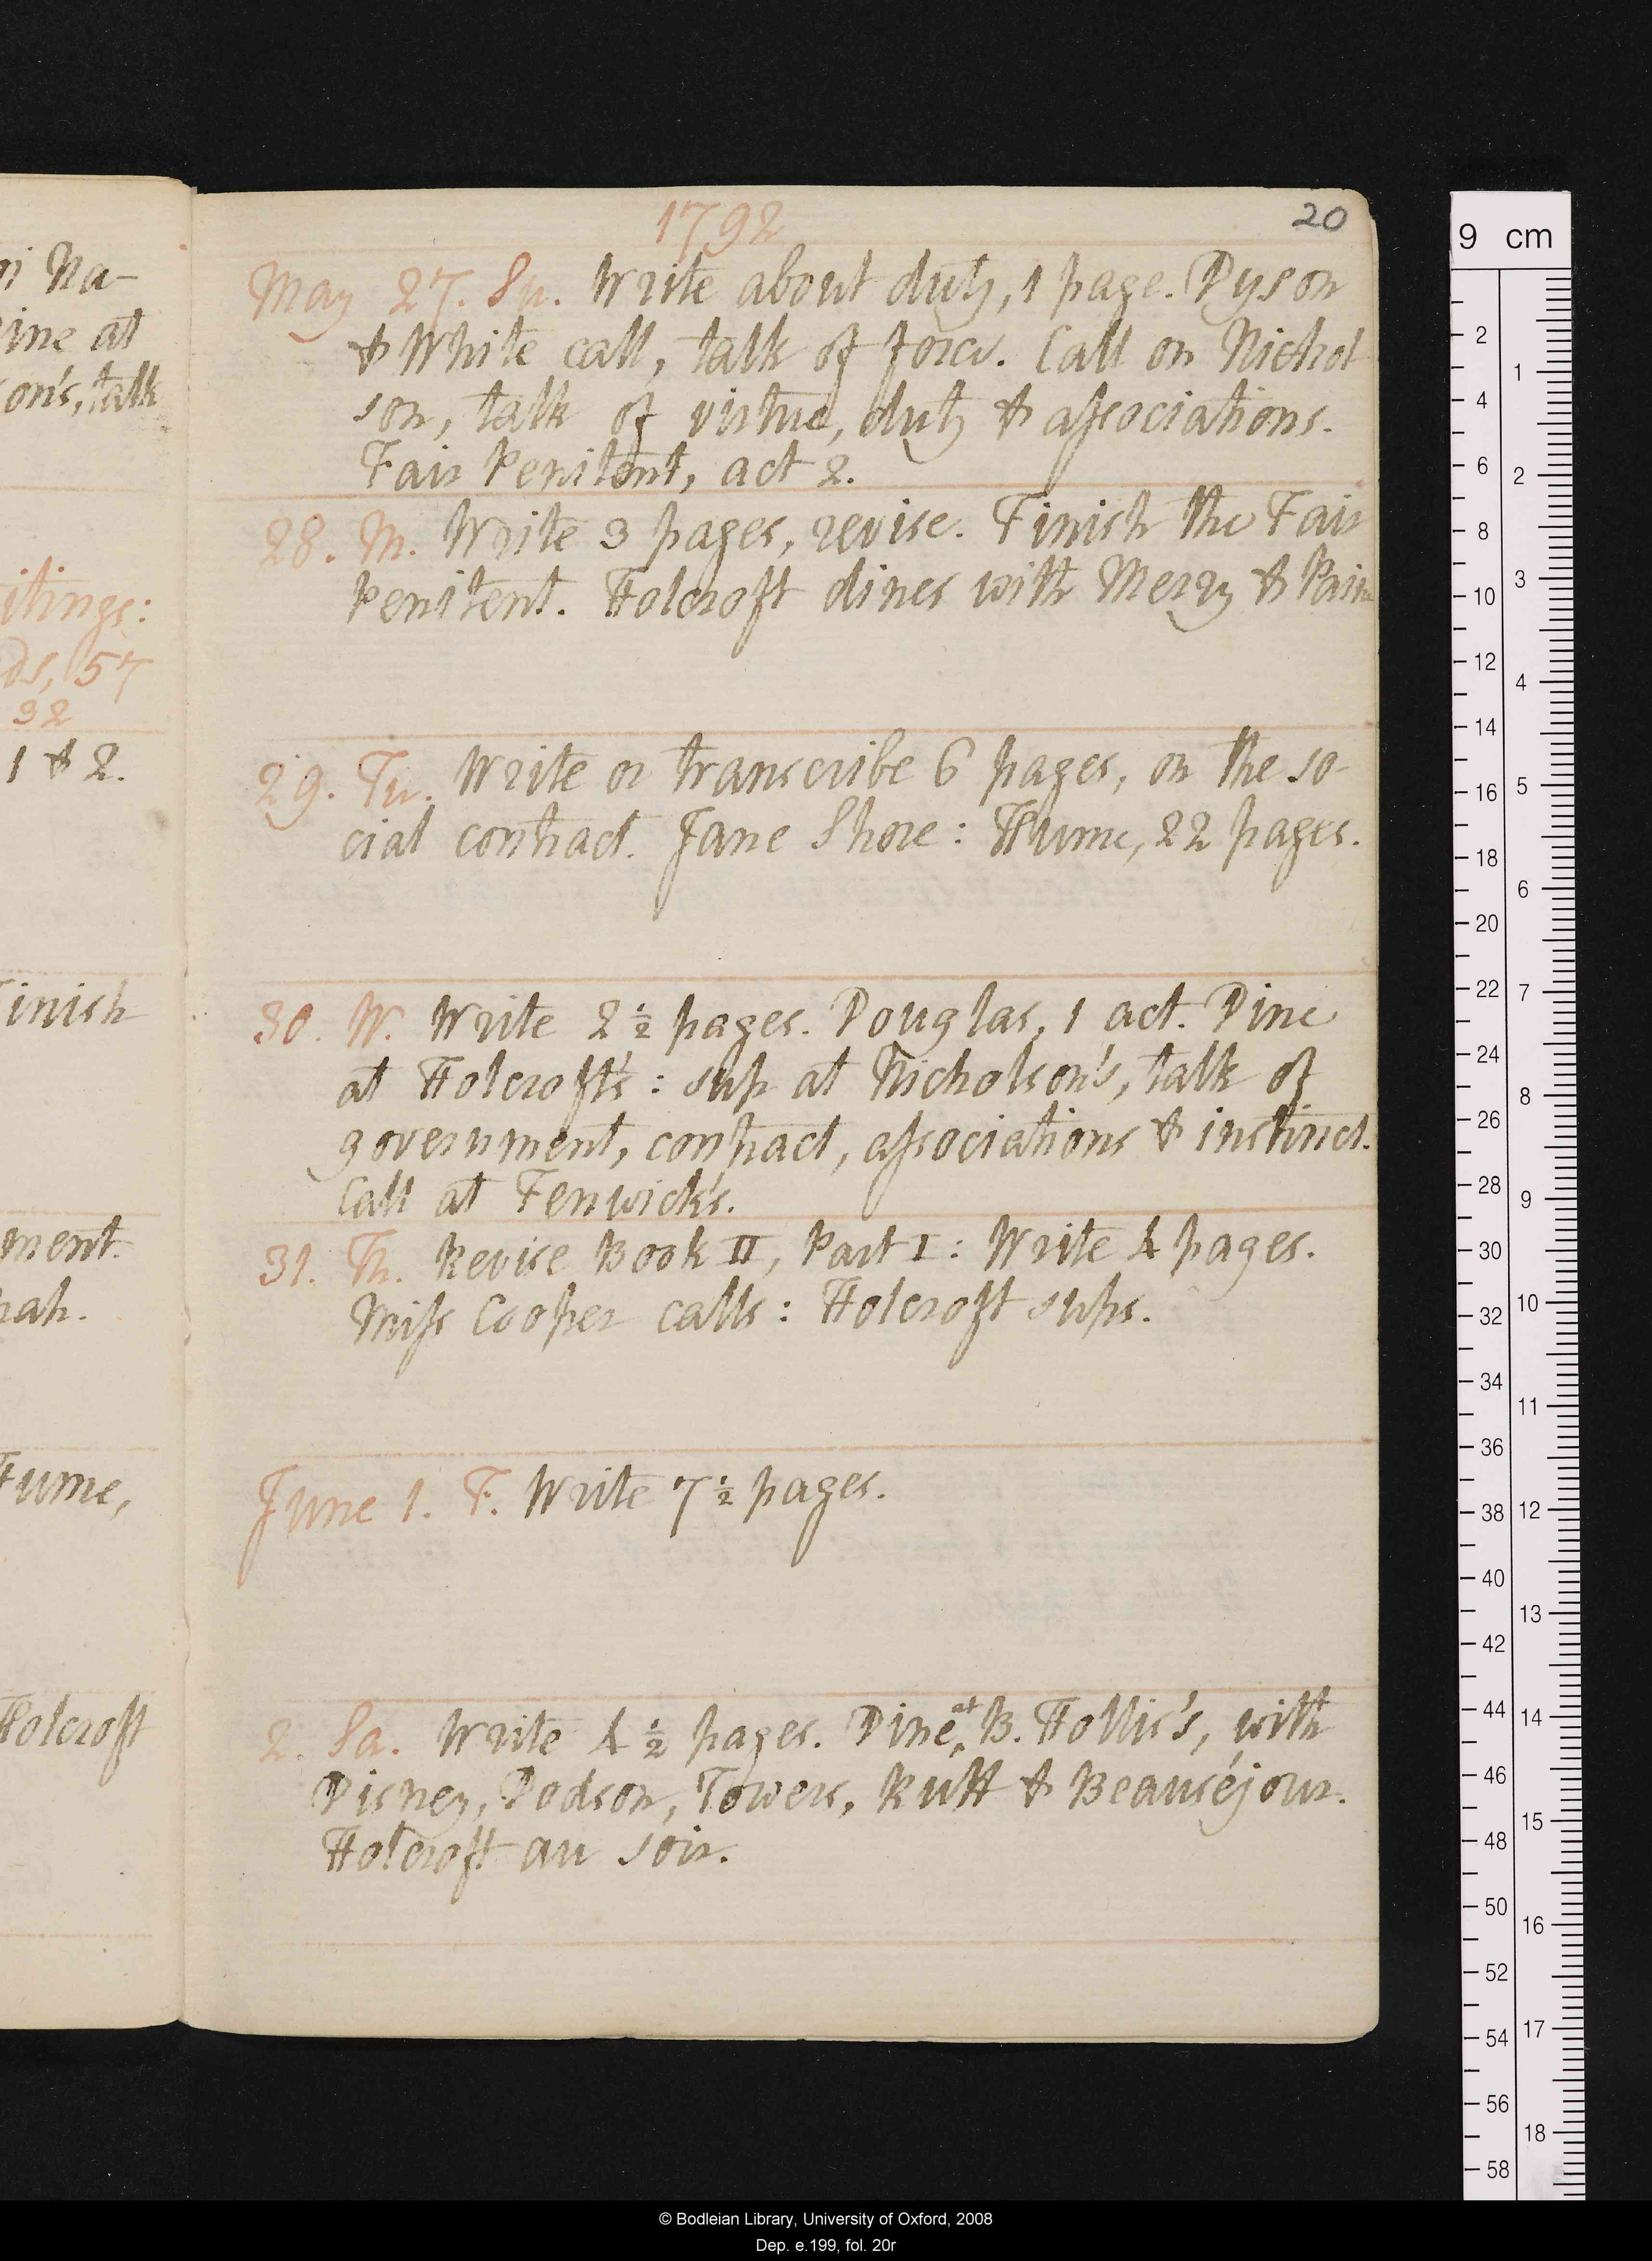 1792
20
May 27. Su. Write about duty, 1 page. Dyson
& White call, talk of force. Call on Nichol
son, talk of virtue, duty & aſsociations.
Fair Penitent, act 2.
28. M. Write 3 pages, revise. Finish the Fair
Penitent. Holcroft dines with Merry & Paine
29. Tu. Write or transcribe 6 pages, on the so-
cial contract. Jane Shore: Hume, 22 pages.
30. W. Write 2 ½ pages. Douglas, 1 act. Dine
at Holcroft's: sup at Nicholson's, talk of
government, contract, aſsociations & instinct.
Call at Fenwick's.
31. Th. Revise Book II, Part I: Write 4 pages.
Miſs Cooper calls: Holcroft sups.
June 1. F. Write 7 ½ pages.
2. Sa. Write 4 ½ pages. Dine at B. Hollis's, with
Disney, Dodson, Towers, Rutt & Beauséjour.
Holcroft au soir.
ni Na-
ine at
son's, talk
itings:
ds, 57
32
1 & 2.
inish
ment.
nah.
Hume,
Holcroft
9 cm
2
4
6
8
10
12
14
16
18
20
22
24
26
28
30
32
34
36
38
40
42
44
46
48
50
52
54
56
58
1
2
3
4
5
6
7
8
9
10
11
12
13
14
15
16
17
18
© Bodleian Library, University of Oxford, 2008
Dep. e.199, fol. 20r